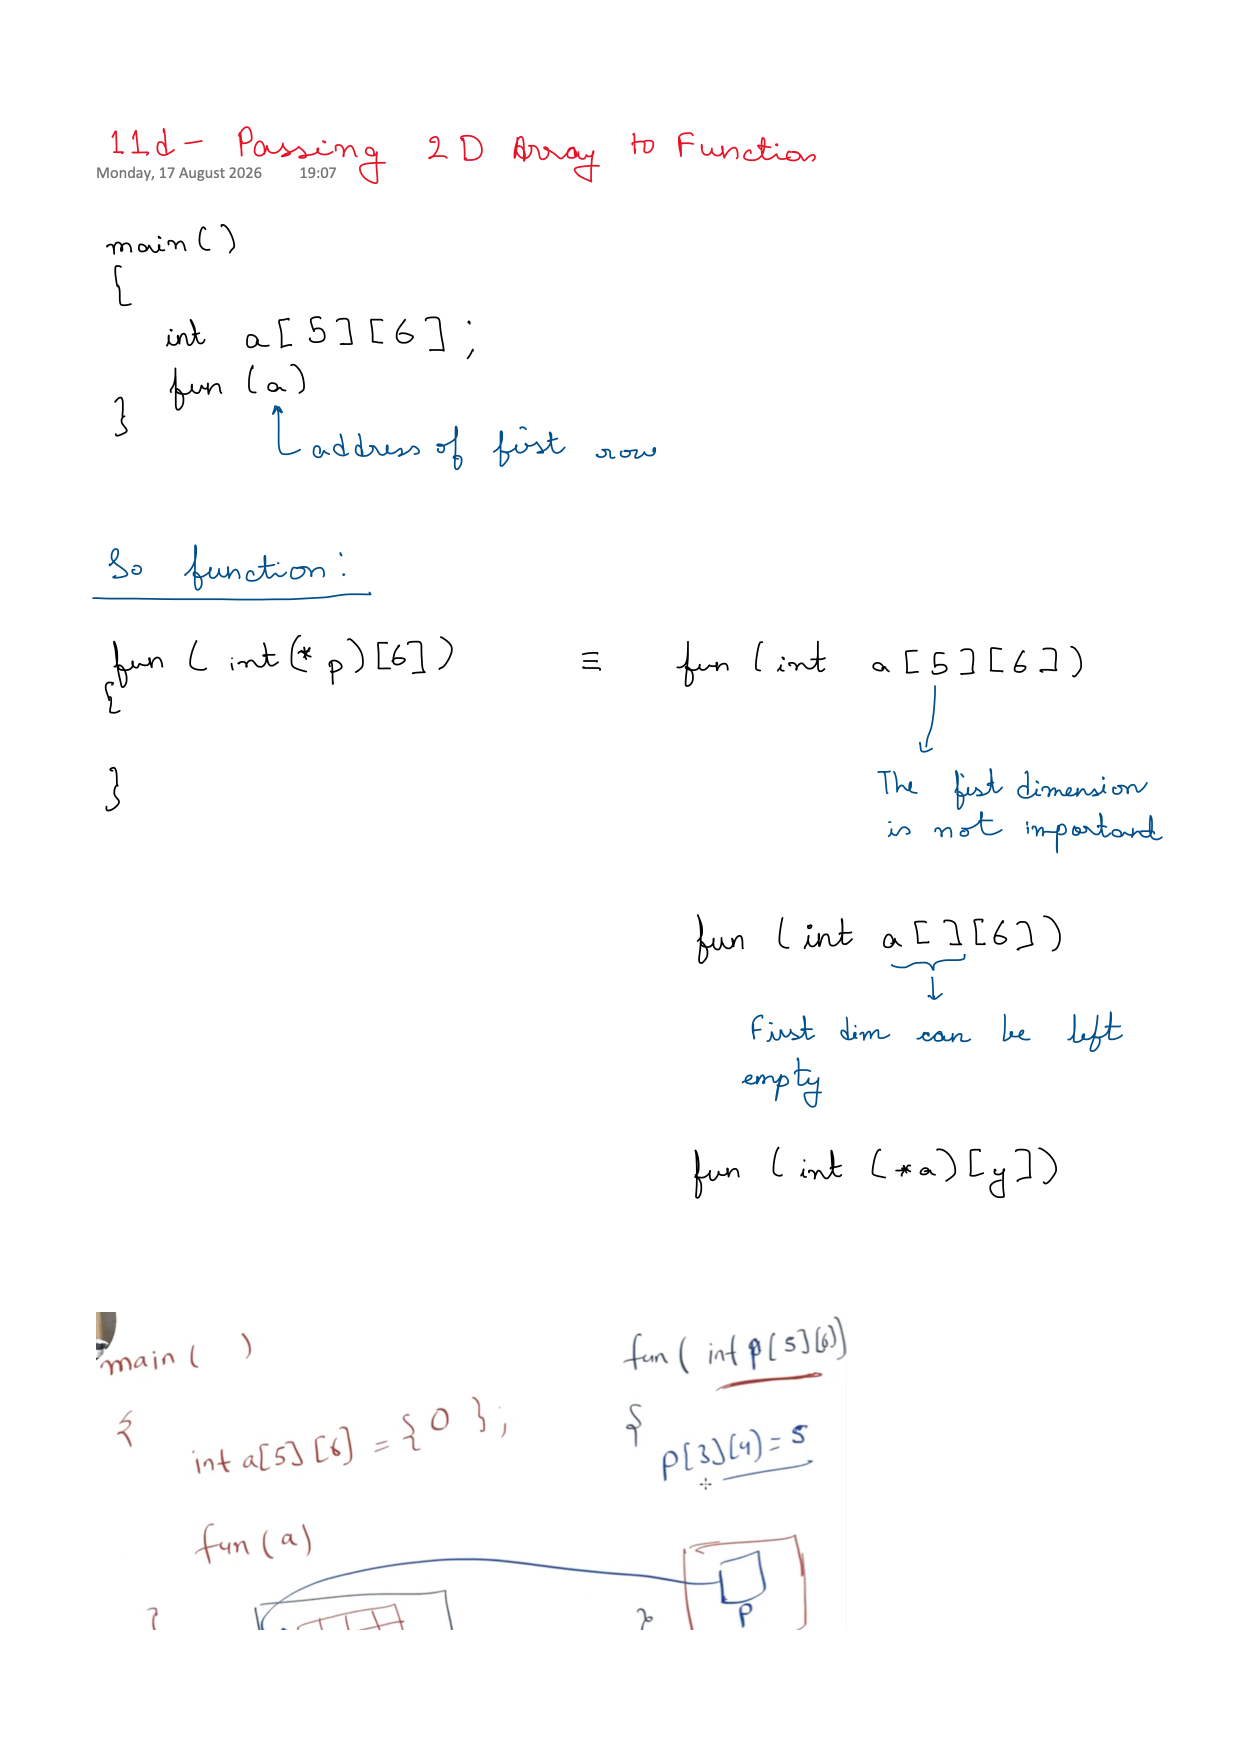 11d- Passing 2D Array to Function
Monday, 17 August 2026 19:07
main()
{
int a[5][6];
fun (a)
}
address of first row
So function:
fun ( int(* p)[6]) ≡ fun (int a[5][6])
{
}
The fist dimension
is not important
fun (int a[][6])
First dim can be left
empty
fun (int (*a)[y])
main( ) fun( int p[5][6])
{ {
int a[5][6] = {0}; p[3][4]=5
fun(a)
} }
P